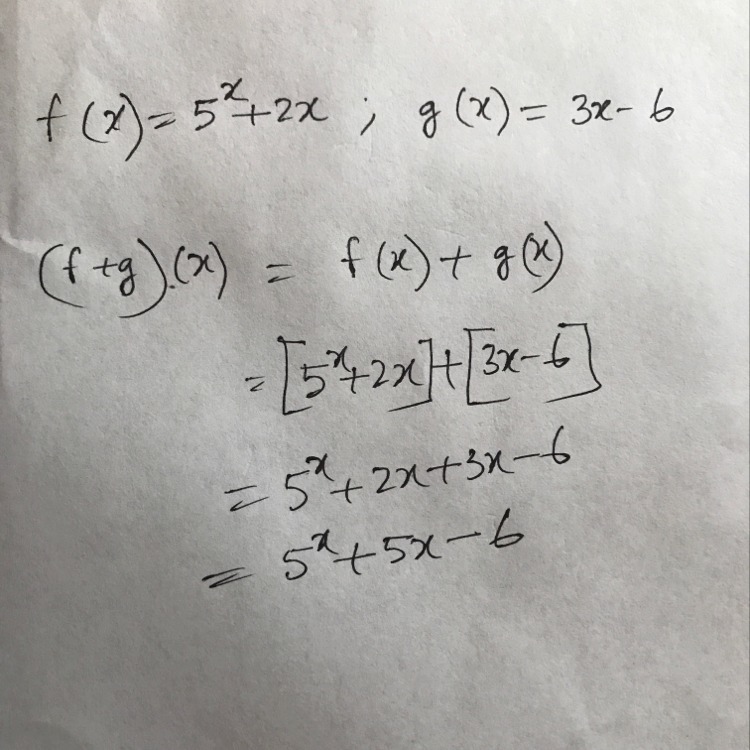 f(x) = 5^x + 2x ; g(x) = 3x - 6
(f+g).(x) = f(x) + g(x)
= [5^x + 2x] + [3x - 6]
= 5^x + 2x + 3x - 6
= 5^x + 5x - 6